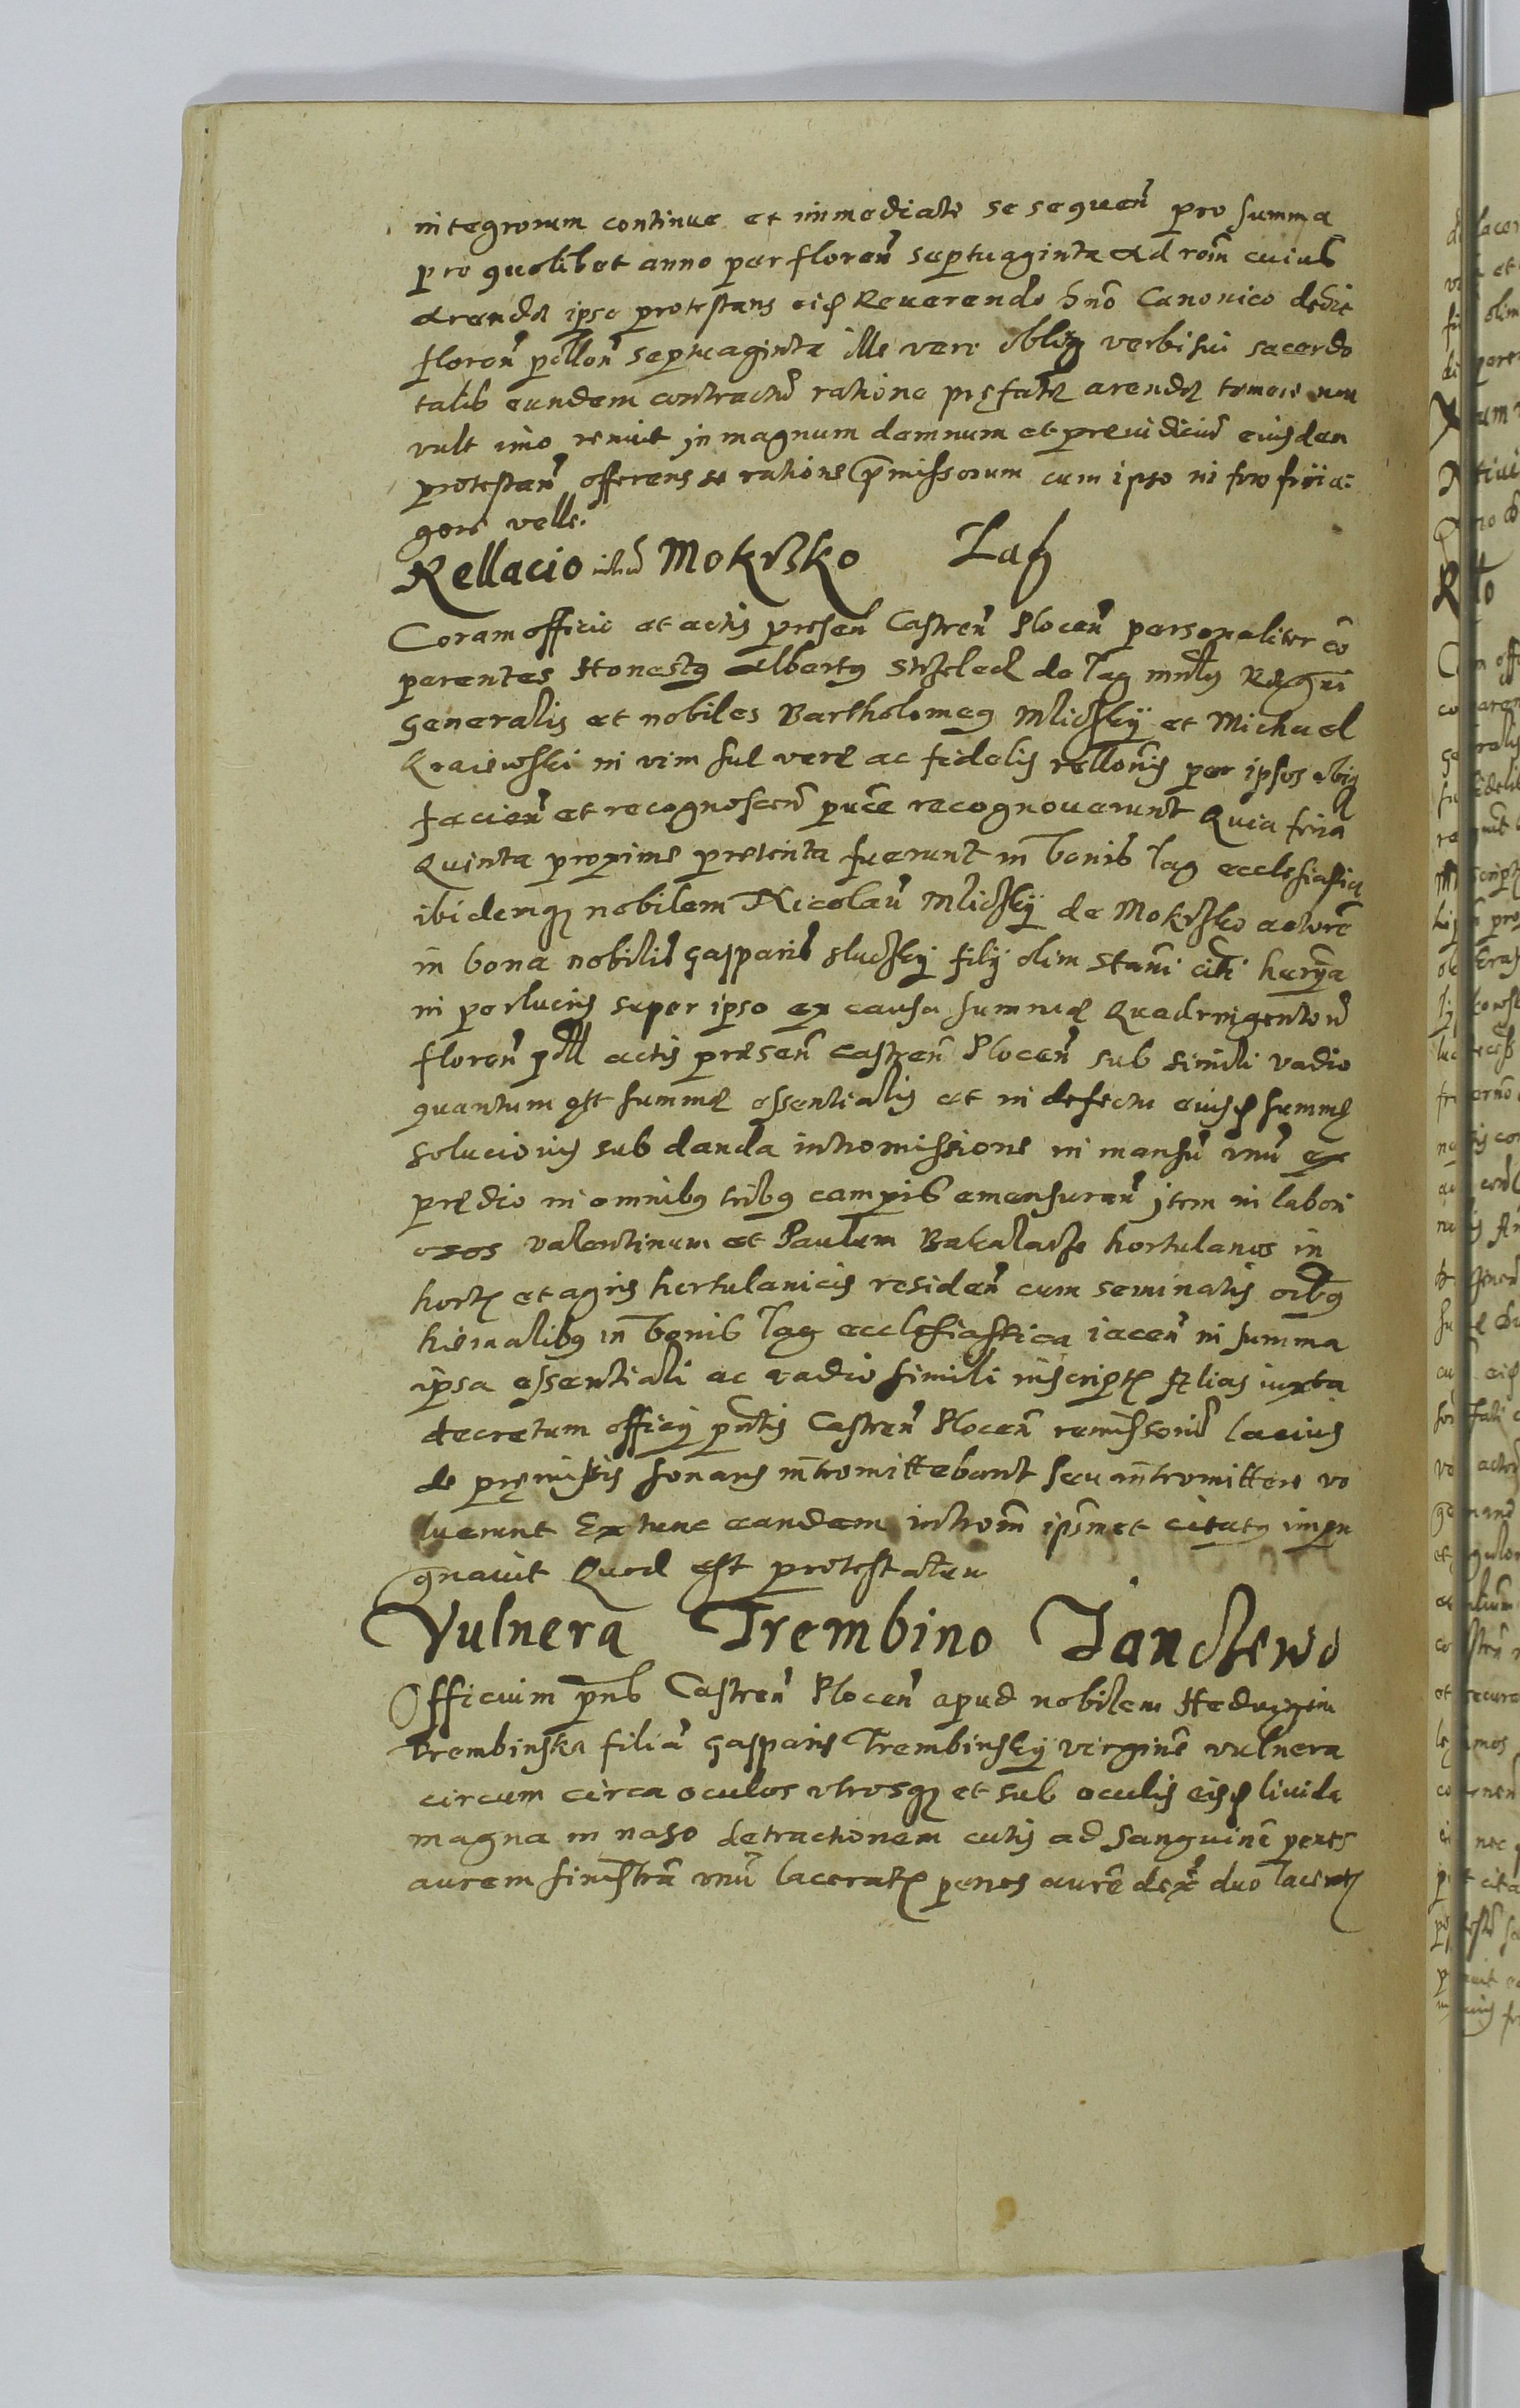 integrorum continue et immediate se sequen̄ pro summa
pro quolibet anno per floren̄ septuaginta ad rōm cuius
arendæ ipse protestans eid Reuerendo Dno Canonico dedit
floren̄ pollon̄ septuaginta ille vero oblitg verbi sui sacerdo
talis eundem contractū ratione præfatæ arendæ tenere non
vult imo renuit in magnum damnum et preiudiciū eiusdem
protestan̄ offerens se ratione p̄missorum cum ipso in foro fori a:
gere velle.
Rellacio Mokrzko Lag
Coram officio et actis presen̄ Castren̄ Plocen̄ personaliter cō
parentes Honestg Albertg de Lag Regni
Generalis et nobiles Bartholomeg Mliczkÿ et Michael
Kraiewski in vim suæ veræ ac fidelis rellonis per ipsos
facien̄ et recognoscen̄ recognouerunt Quia feria
Quinta proxime preterita fuerunt in bonis Lag ecclesiastica
ibidemq nobilem Nicolaū Mliczkÿ de Mokrzko actorē
in bona nobilis Gasparis Sluczkÿ filÿ olim Stani
in perlucris super ipso ex causa summæ Quadringentorū
floren̄ poll actis præsen̄ Castren̄ Plocen̄ sub simili vadio
quantum est summæ essentialis et in defectu eiusd summæ
solucionis sub danda intromissione in mansū vnū ex
prædio in omnibg tribg campis emensuran̄ item in labori
osos Valentinum et Paulum hortulanos in
hort et agris hortulanicis residen̄ cum seminatis oībg
hiemalibg in bonis Lag ecclesiastica iacen̄ in summa
ipsa essentiali ac vadio simili inscript alias iuxta
decretum officÿ pn̄tis Castren̄ Plocen̄ remissoriū lacius
de præmissis sonans intromittebant seu intromittere vo
luerunt Ex tunc eandem introm̄ ipsemet citatg impu
gnauit Quod est protestatum
Vulnera Trembino Janczewo
Officium pn̄s Castren̄ Plocen̄ apud nobilem Heduigim
Trembinska filiā Gasparis Trembinskÿ virginē vulnera
circum circa oculos vtrosq et sub oculis eisd liuida
magna in naso detractionem cutis ad sanguinē penes
aurem sinistrā vnū lacerat penes aurē dex duo lacerat